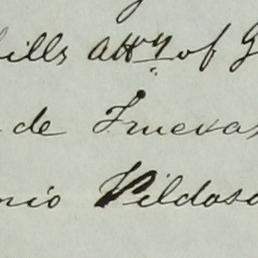 ills Atty of G
de Truevas
nio Vildoso